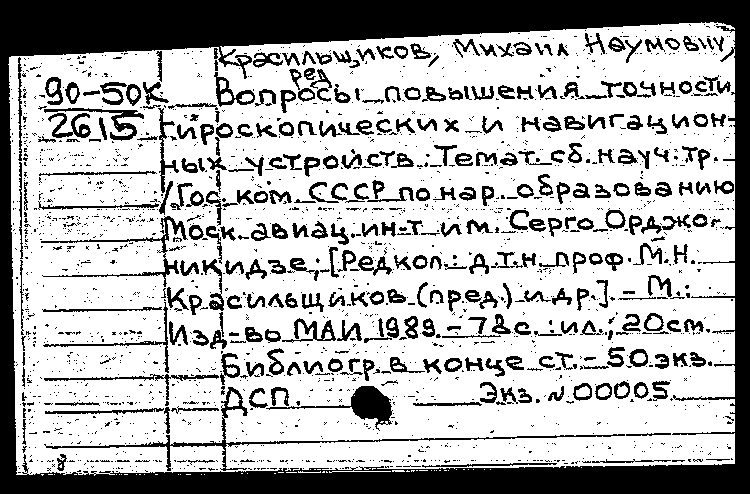 Красильщиков, Михаил Наумович,
ред.
90-50К Вопросы повышения точности
2615 гироскопических и навигацион-
ных устройств: Темат. сб. науч. тр.
/Гос. ком. СССР по нар. образованию
Моск. авиац. ин-т им. Серго Орджо-
никидзе; [Редкол.: д.т.н. проф. М.Н.
Красильщиков (пред.) и др.]. - М.:
Изд-во МАИ, 1989. - 78с.: ил.; 20см.
Библиогр. в конце ст. - 50 экз.
ДСП. Экз. N 00005.
8